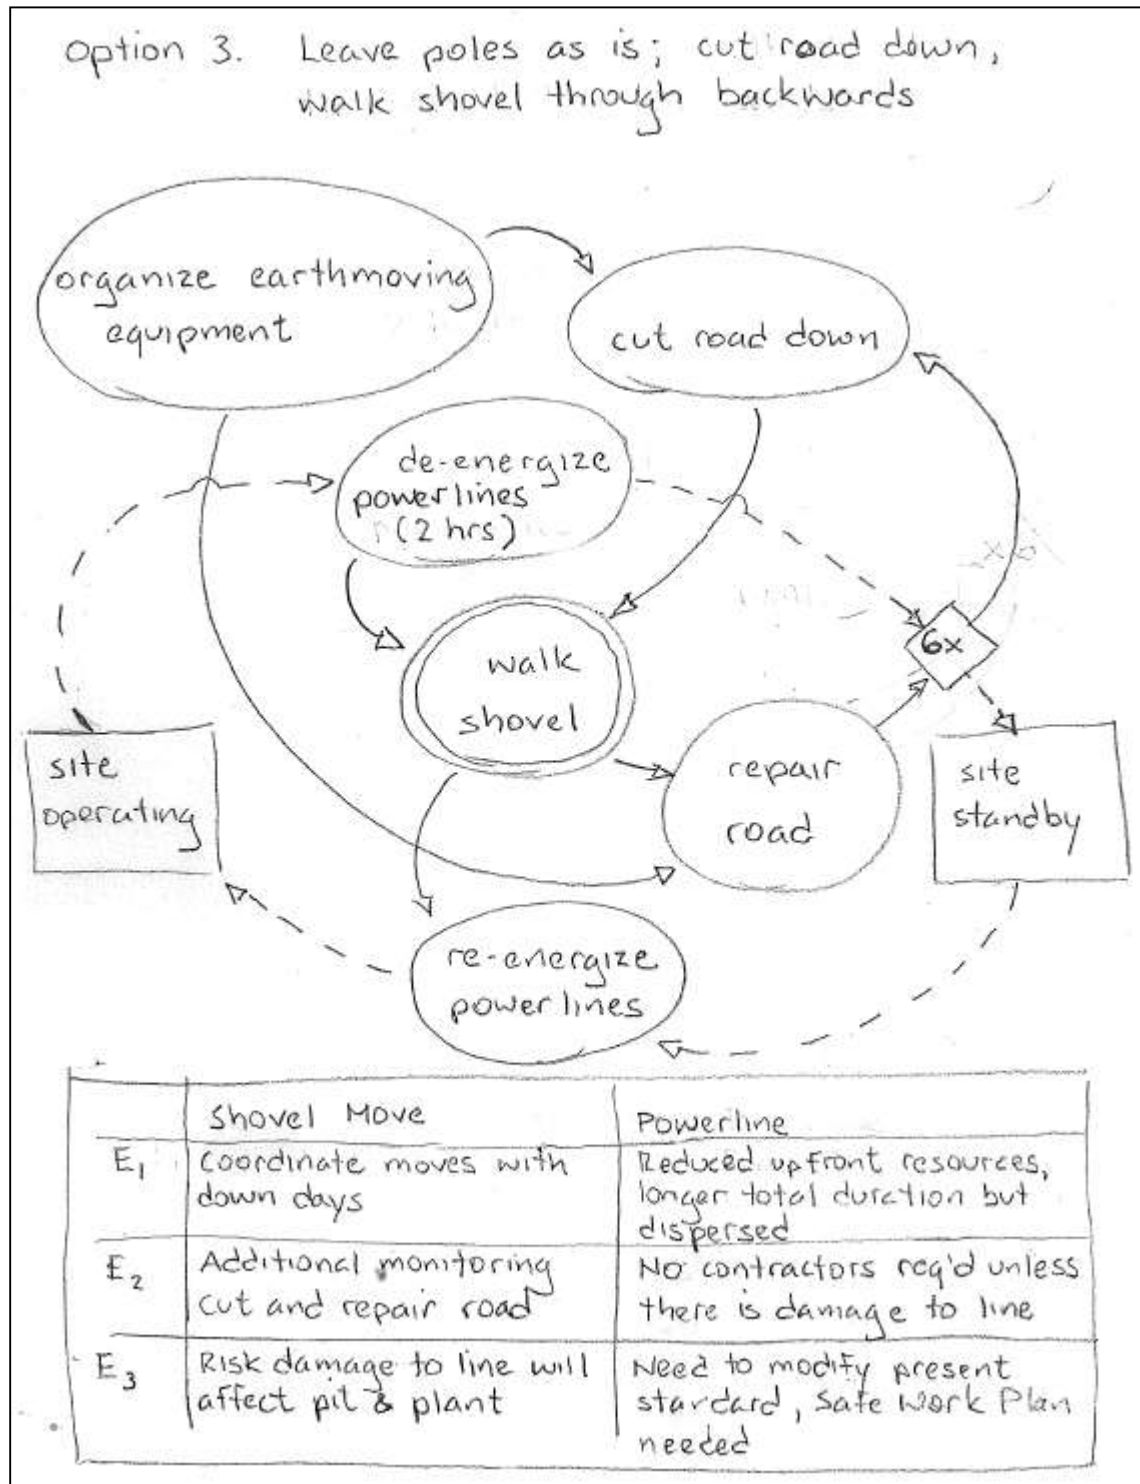 Option 3. Leave poles as is; cut road down,
walk shovel through backwards
organize earthmoving
equipment
cut road down
de-energize
powerlines
(2 hrs)
walk
shovel
6x
site
operating
repair
road
site
standby
re-energize
powerlines
Shovel Move
Powerline
E1
Coordinate moves with
down days
Reduced upfront resources,
longer total duration but
dispersed
E2
Additional monitoring
cut and repair road
No contractors req'd unless
there is damage to line
E3
Risk damage to line will
affect pit & plant
Need to modify present
stardard, Safe Work Plan
needed